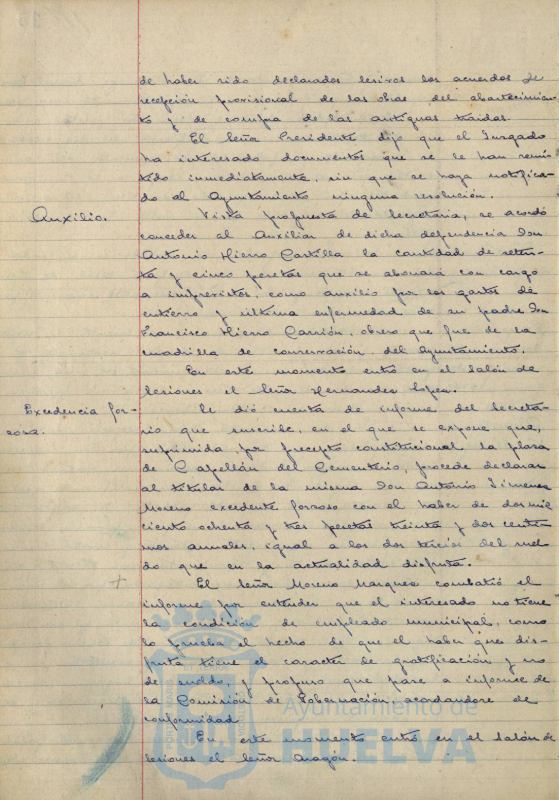 de haber sido declarados lesivos los acuerdos de
recepción provisional de las obras del abastecimien-
to y de compra de las antiguas traidas.
El Señor Presidente dijo que el Juzgado
ha interesado documentos que se le han remi-
tido inmediatamente, sin que se haya notifica-
do al Ayuntamiento ninguna resolución.
Auxilio.
Vista propuesta de Secretaria, se acordó
conceder al Auxiliar de dicha dependencia Don
Antonio Hierro Castilla la cantidad de seten-
ta y cinco pesetas que se abonará con cargo
a imprevistos, como auxilio por los gastos de
entierro y última enfermedad de su padre Don
Francisco Hierro Carrión, obrero que fue de la
cuadrilla de conservación del Ayuntamiento.
En este momento entró en el salón de
sesiones el Señor Hernandez Lopez.
Excedencia for-
zosa.
Se dió cuenta de informe del Secreta-
rio que suscribe, en el que se expone que,
suprimida, por precepto constitucional la plaza
de Capellán del Cementerio, procede declarar
al titular de la misma Don Antonio Jimenez
Moreno excedente forzoso con el haber de dos mil
ciento ochenta y tres pesetas treinta y dos centi-
mos anuales, igual a los dos tercios del suel-
do que en la actualidad disfruta.
El Señor Moreno Marquez combatió el
informe por entender que el interesado no tiene
la condición de empleado municipal, como
lo prueba el hecho de que el haber que dis-
fruta tiene el caracter de gratificación y no
de sueldo, y propuso que pase a informe de
la Comisión de Gobernación, acordandose de
conformidad.
En este momento entró en el salón de
sesiones el Señor Aragón.
Ayuntamiento de
HUELVA